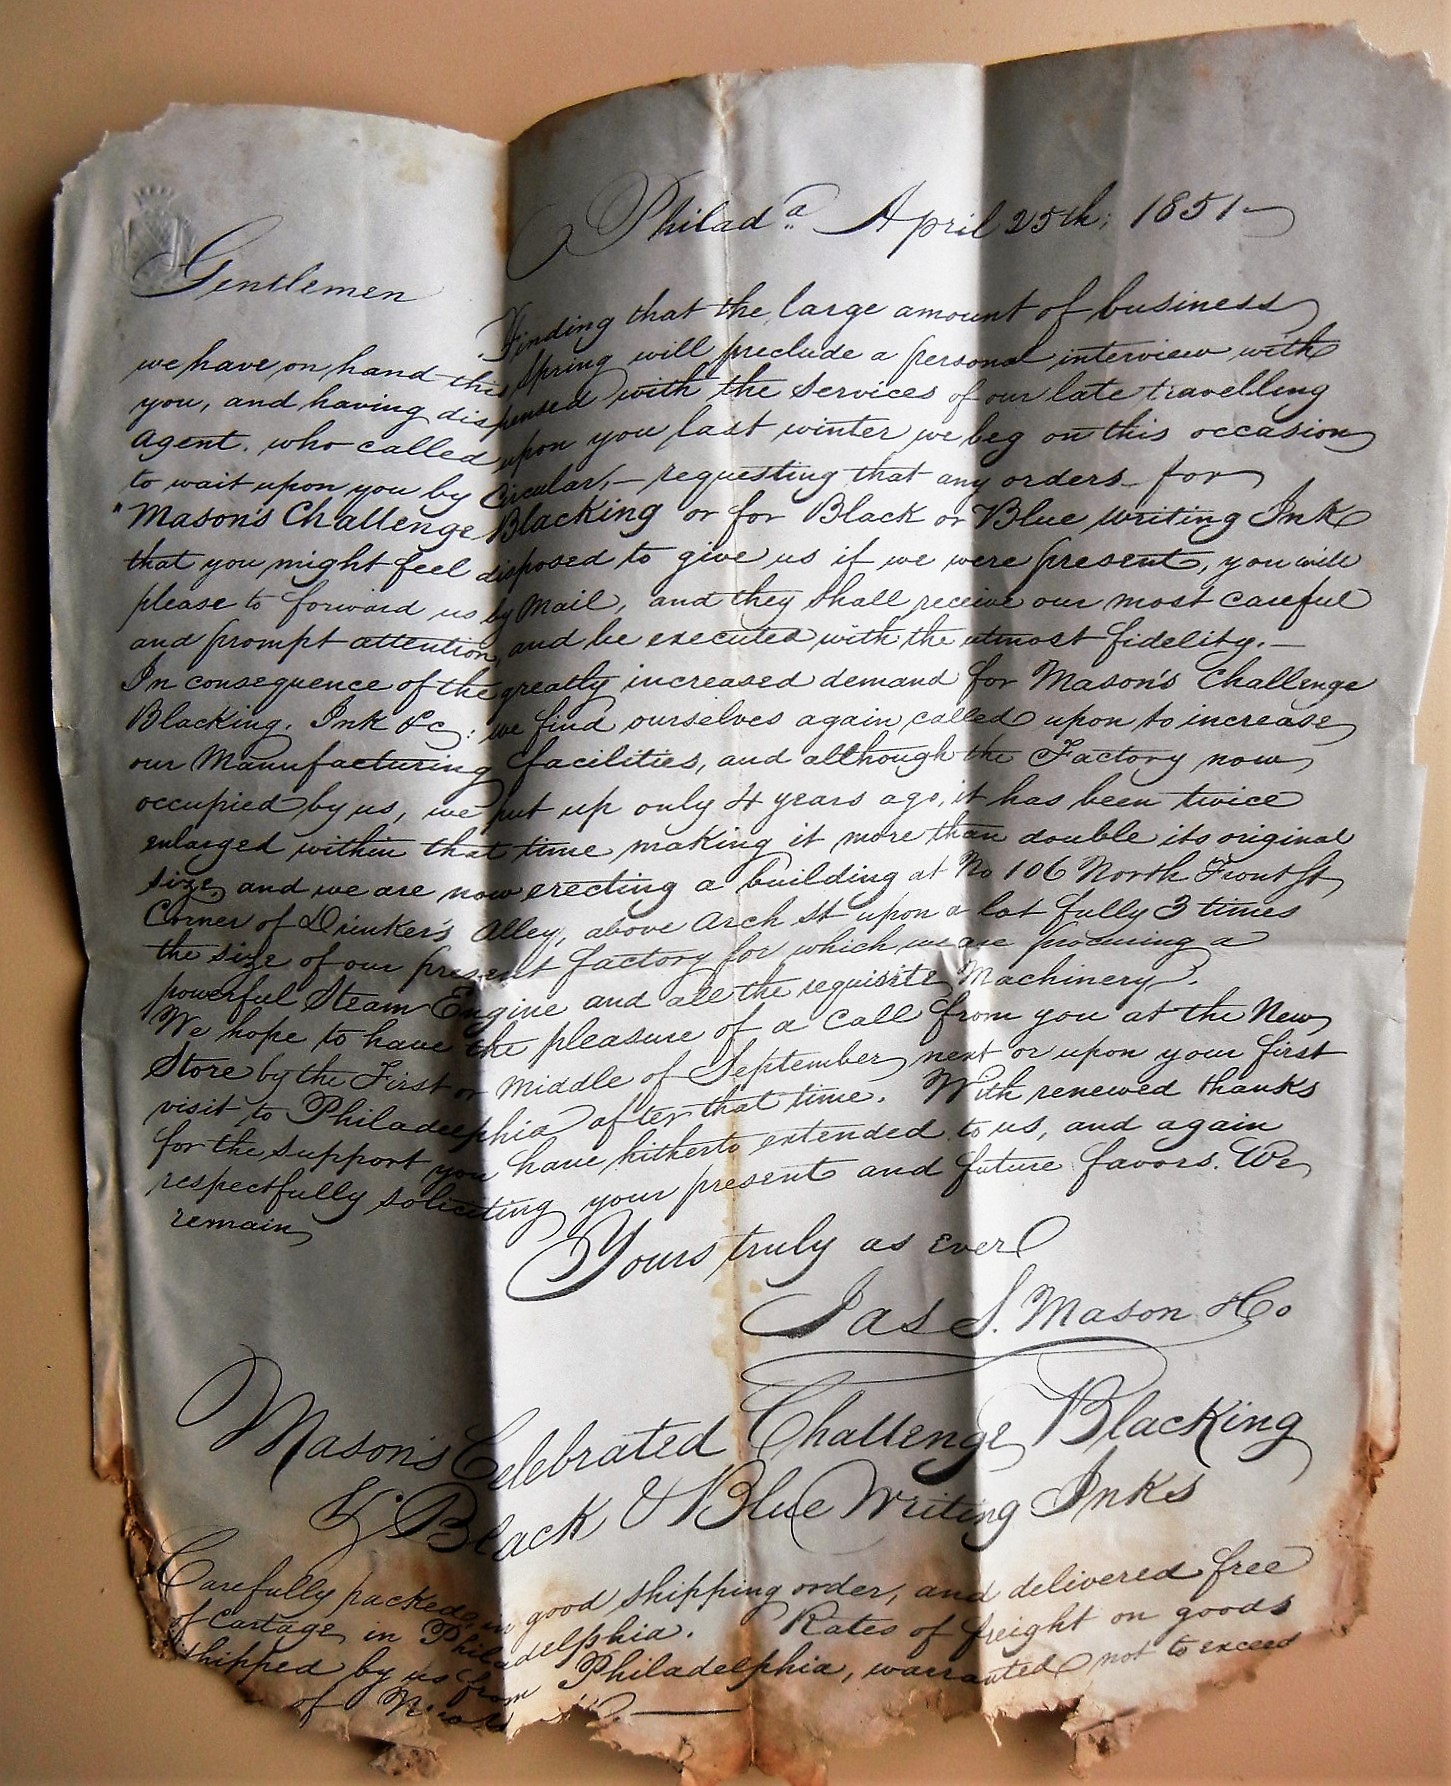 Philad.ª April 25th; 1851
Gentlemen
Finding that the large amount of business
we have on hand this Spring will preclude a personal interview with
you, and having dispensed with the services of our late travelling
Agent. who called upon you last winter we beg on this occasion
to wait upon you by Circular,— requesting that any orders for
"Mason's Challenge Blacking or for Black or Blue writing Ink
that you might feel disposed to give us if we were present, you will
please to forward us by Mail, and they shall receive our most careful
and prompt attention, and be executed with the utmost fidelity.—
In consequence of the greatly increased demand for Mason's Challenge
Blacking, Ink &c; we find ourselves again called upon to increase
our Manufacturing facilities, and although the Factory now
occupied by us, we put up only 4 years ago, it has been twice
enlarged within that time making it more than double its original
size, and we are now erecting a building at No 106 North Front St,
Corner of Drinker's Alley, above Arch St upon a lot fully 3 times
the size of our present factory for which we are procuring a
powerful Steam Engine and all the requisite Machinery.
We hope to have the pleasure of a call from you at the New
Store by the First or Middle of September next or upon your first
visit to Philadelphia after that time. With renewed thanks
for the support you have hitherto extended to us, and again
respectfully soliciting your present and future favors. We
remain
Yours truly as ever
Jas S. Mason & Co
Mason's Celebrated Challenge Blacking
& Black & Blue Writing Inks
Carefully packed in good shipping order, and delivered free
of Cartage in Philadelphia. Rates of freight on goods
shipped by us from Philadelphia, warranted not to exceed
of